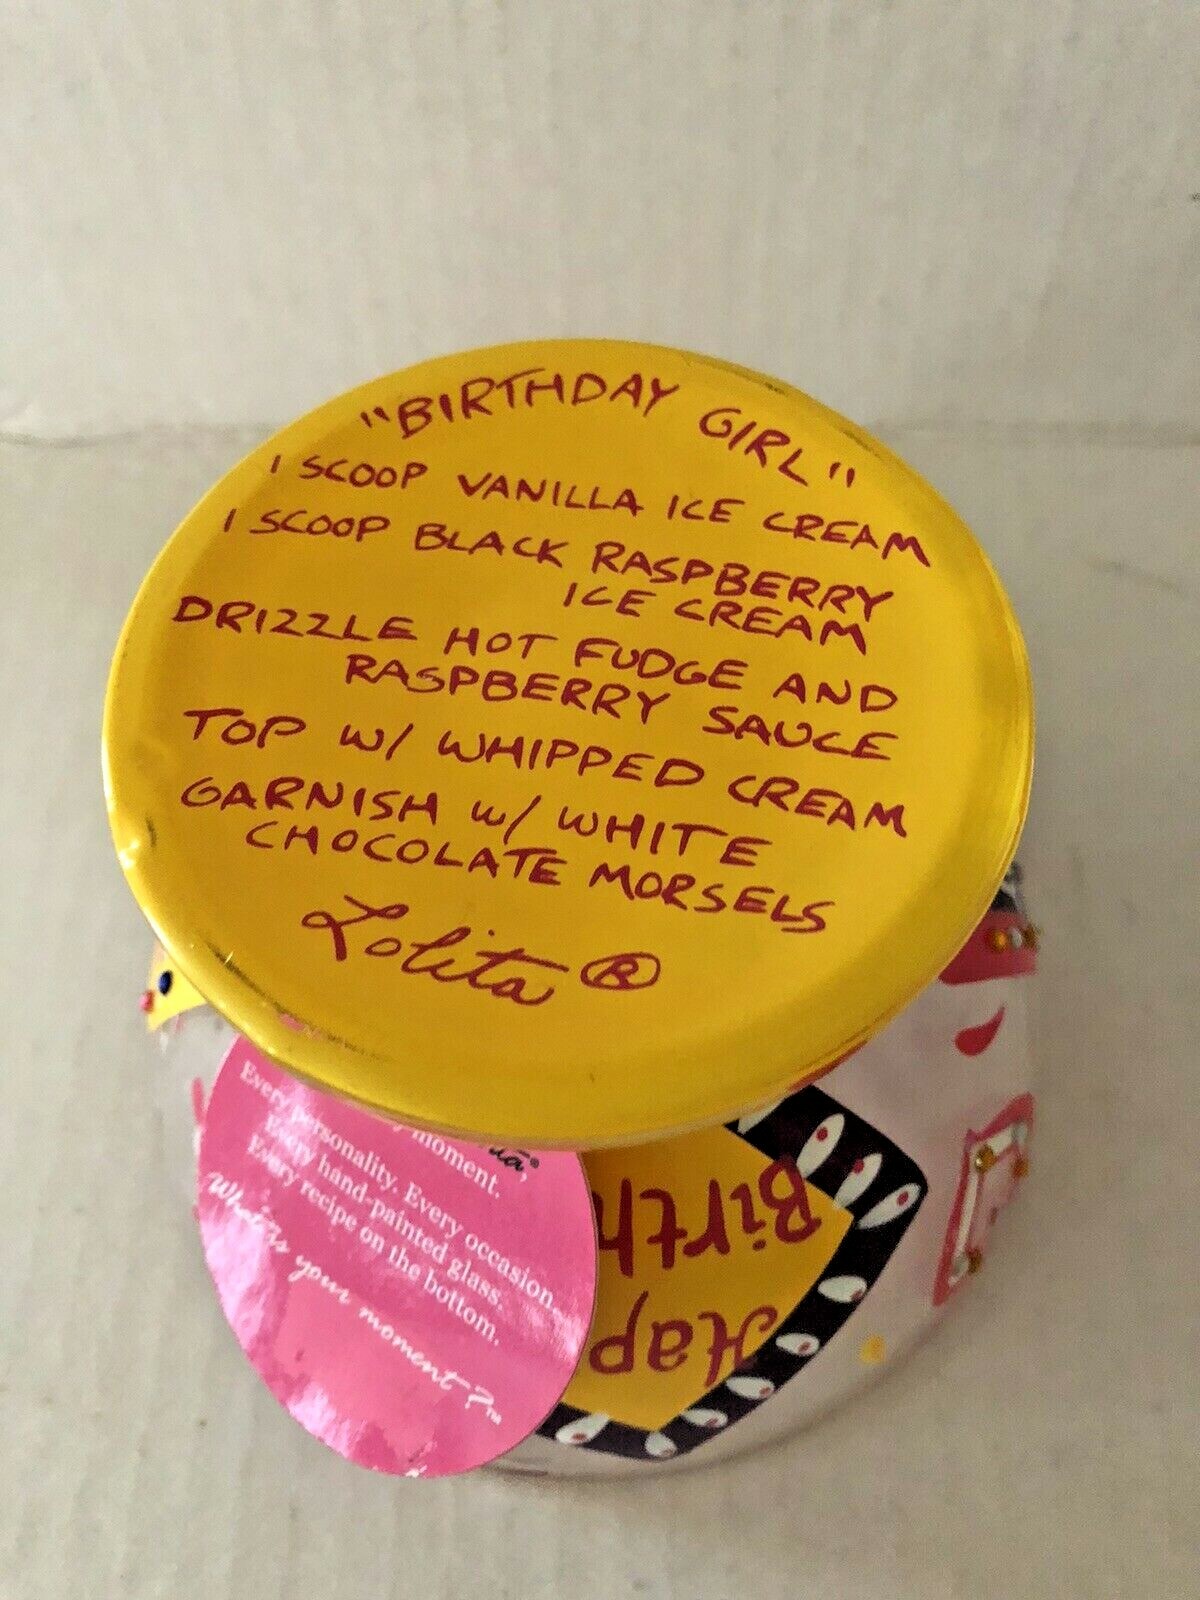 "BIRTHDAY GIRL"
1 SCOOP VANILLA ICE CREAM
1 SCOOP BLACK RASPBERRY
ICE CREAM
DRIZZLE HOT FUDGE AND
RASPBERRY SAUCE
TOP W/ WHIPPED CREAM
GARNISH W/ WHITE
CHOCOLATE MORSELS
Lolita ®
Every moment.
Every personality. Every occasion.
Every hand-painted glass.
Every recipe on the bottom.
What's your moment?™
Hap
Birth